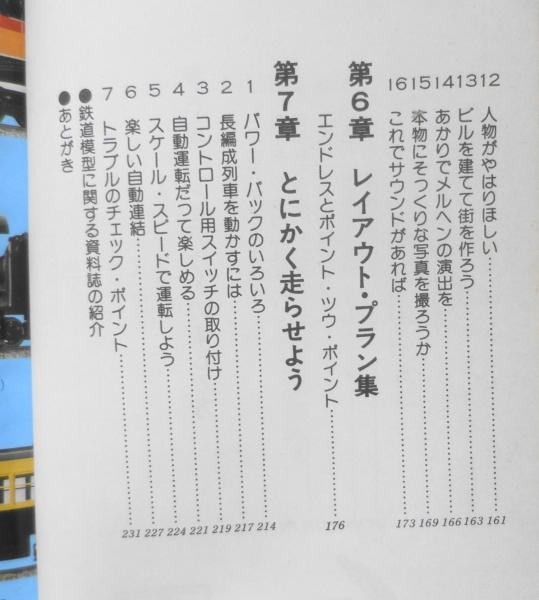 12 人物がやはりほしい……161
13 ビルを建てて街を作ろう……163
14 あかりでメルヘンの演出を……166
15 本物にそっくりな写真を撮ろうか……169
16 これでサウンドがあれば……173
第6章 レイアウト・プラン集
エンドレスとポイント・ツウ・ポイント……176
第7章 とにかく走らせよう
1 パワー・パックのいろいろ……214
2 長編成列車を動かすには……217
3 コントロール用スイッチの取り付け……219
4 自動運転だって楽しめる……221
5 スケール・スピードで運転しよう……224
6 楽しい自動連結……227
7 トラブルのチェック・ポイント……231
●鉄道模型に関する資料誌の紹介
●あとがき